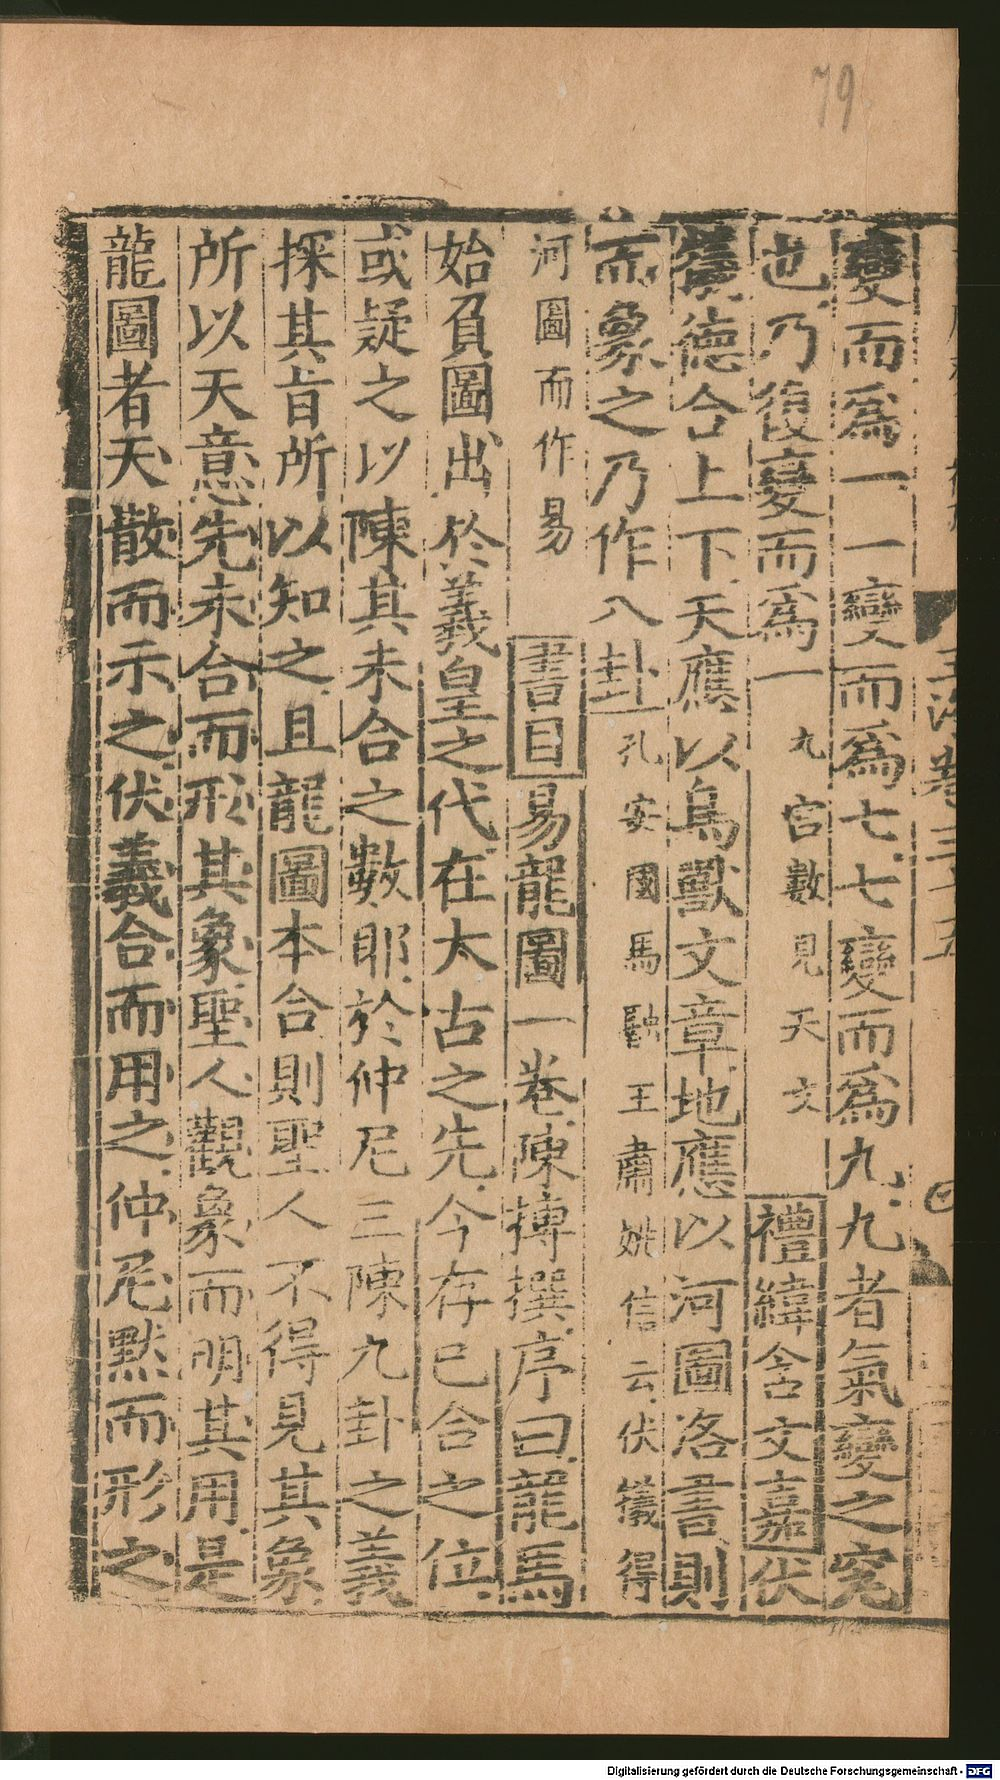 79
玉海卷三十五
變而爲一一變而爲七七變而爲九九者氣變之究
也乃復變而爲一九宮數見天文禮緯含文嘉伏
羲德合上下天應以鳥獸文章地應以河圖洛書則
而象之乃作八卦孔安國馬融王肅姚信云伏羲得
河圖而作易書目易龍圖一卷陳摶撰序曰龍馬
始負圖出於羲皇之代在太古之先今存已合之位
或疑之以陳其未合之數耶於仲尼三陳九卦之義
探其旨所以知之且龍圖本合則聖人不得見其象
所以天意先未合而形其象聖人觀象而明其用是
龍圖者天散而示之伏羲合而用之仲尼默而形之
Digitalisierung gefördert durch die Deutsche Forschungsgemeinschaft - DFG